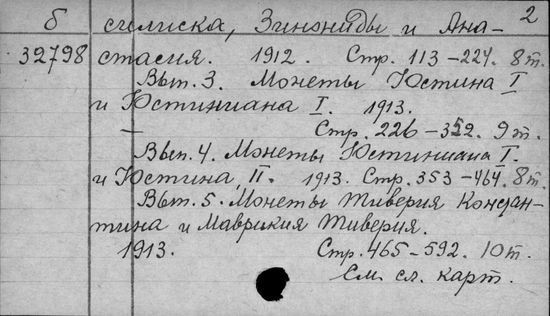 б силиска, Зинониды и Ана- 2
32798 стасия. 1912. Стр. 113-224. 8 т.
Вып. 3. Монеты Юстина I
и Юстиниана I. 1913.
— Стр. 226-352. 9 т.
Вып. 4. Монеты Юстиниана I.
и Юстина, II. 1913. Стр. 353-464. 8 т.
Вып. 5. Монеты Тиверия Констан-
тина и Маврикия Тиверия.
1913. Стр. 465-592. 10 т.
См. сл. карт.